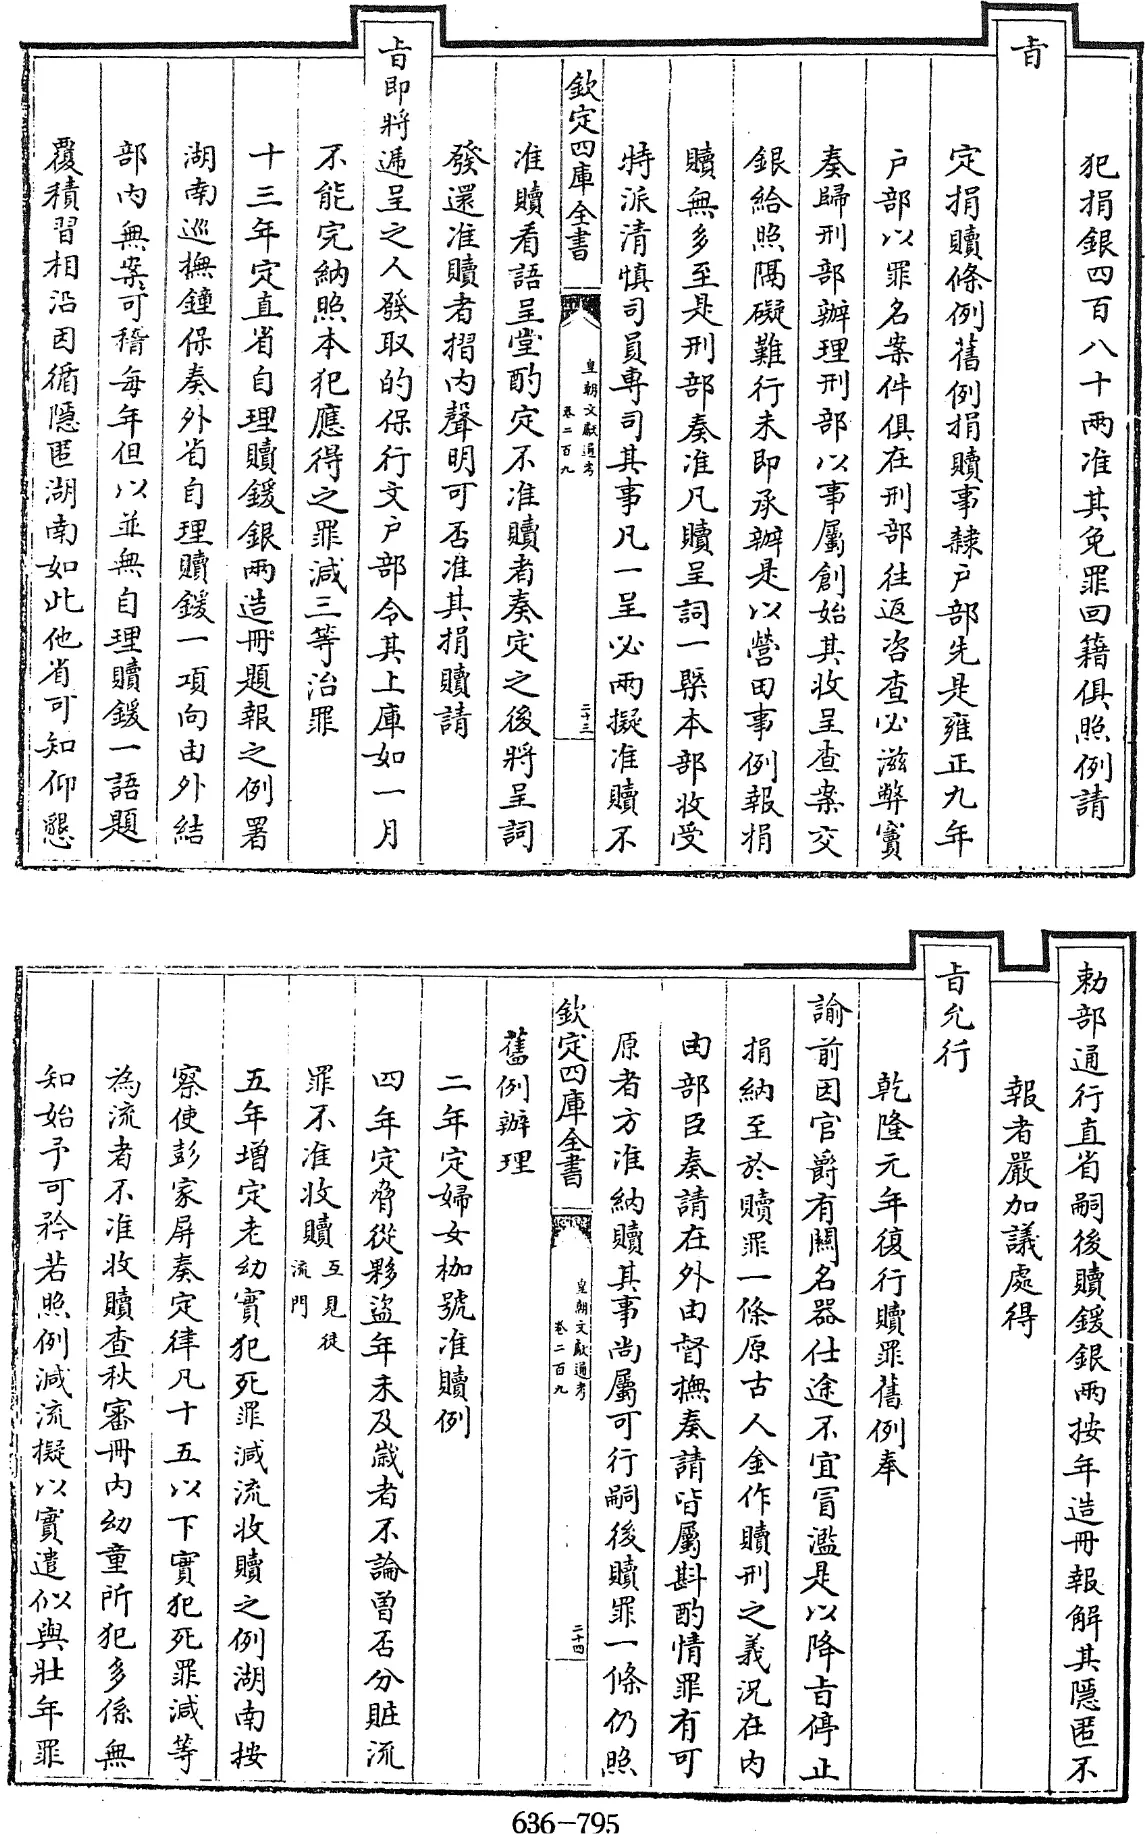 犯捐銀四百八十兩准其免罪回籍俱照例請
旨
定捐贖條例舊例捐贖事隸户部先是雍正九年
户部以罪名案件俱在刑部往返咨查必滋弊竇
奏歸刑部辦理刑部以事屬創始其收呈查案交
銀給照隔礙難行未即承辦是以營田事例報捐
贖無多至是刑部奏准凡贖呈詞一槩本部收受
特派清慎司員專司其事凡一呈必兩擬准贖不
欽定四庫全書
皇朝文獻通考
卷二百九
二十三
准贖看語呈堂酌定不准贖者奏定之後將呈詞
發還准贖者摺内聲明可否准其捐贖請
旨即將遞呈之人發取的保行文户部令其上庫如一月
不能完納照本犯應得之罪減三等治罪
十三年定直省自理贖鍰銀兩造冊題報之例署
湖南巡撫鐘保奏外省自理贖鍰一項向由外結
部内無案可稽每年但以並無自理贖鍰一語題
覆積習相沿因循隱匿湖南如此他省可知仰懇
勅部通行直省嗣後贖鍰銀兩按年造冊報解其隱匿不
報者嚴加議處得
旨允行
乾隆元年復行贖罪舊例奉
諭前因官爵有關名器仕途不宜冒濫是以降旨停止
捐納至於贖罪一條原古人金作贖刑之義況在内
由部臣奏請在外由督撫奏請皆屬斟酌情罪有可
原者方准納贖其事尚屬可行嗣後贖罪一條仍照
欽定四庫全書
皇朝文獻通考
卷二百九
二十四
舊例辦理
二年定婦女枷號准贖例
四年定脅從夥盜年未及歲者不論曾否分贓流
罪不准收贖互見徒流門
五年增定老幼實犯死罪減流收贖之例湖南按
察使彭家屏奏定律凡十五以下實犯死罪減等
為流者不准收贖查秋審冊内幼童所犯多係無
知始予可矜若照例減流擬以實遣似與壯年罪
636-795